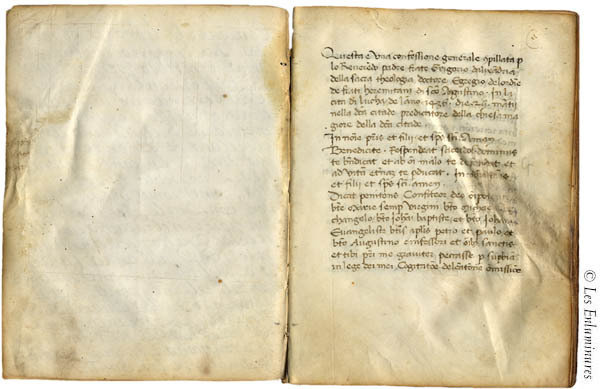 Questa e una confessione generale cpillata p
lo Reverēdo padre frate Grigorio dalixādria
della sacra theologia doctore Egregio de lordine
de frati heremitani di sco Agustino. In la
cita di Luccha de lano 1436. die 29. martii
nella dca citade predicatore della chiesa ma
giore della dca citade
In noīe pris et filii et spū sci Amen
Benedicite. Respondeat sacerdos. dominus
te bndicat et ab oi malo te defendat et
ad vitā eternaz te pducat. In
et filii et spū sci. amen
Dicat penitens Confiteor deo oīpotenti
bte Marie semp virgini bto Micheli
changelo bto Johāni baptiste, et bto Johanni
Evangeliste btis aplis petro et paulo, et
bto Augustino confessori et oib sanctis
et tibi pri me graviter peccasse p supbiā
in lege dei mei, Cogitatōe delectatōne omissiōe
© Les Enluminures